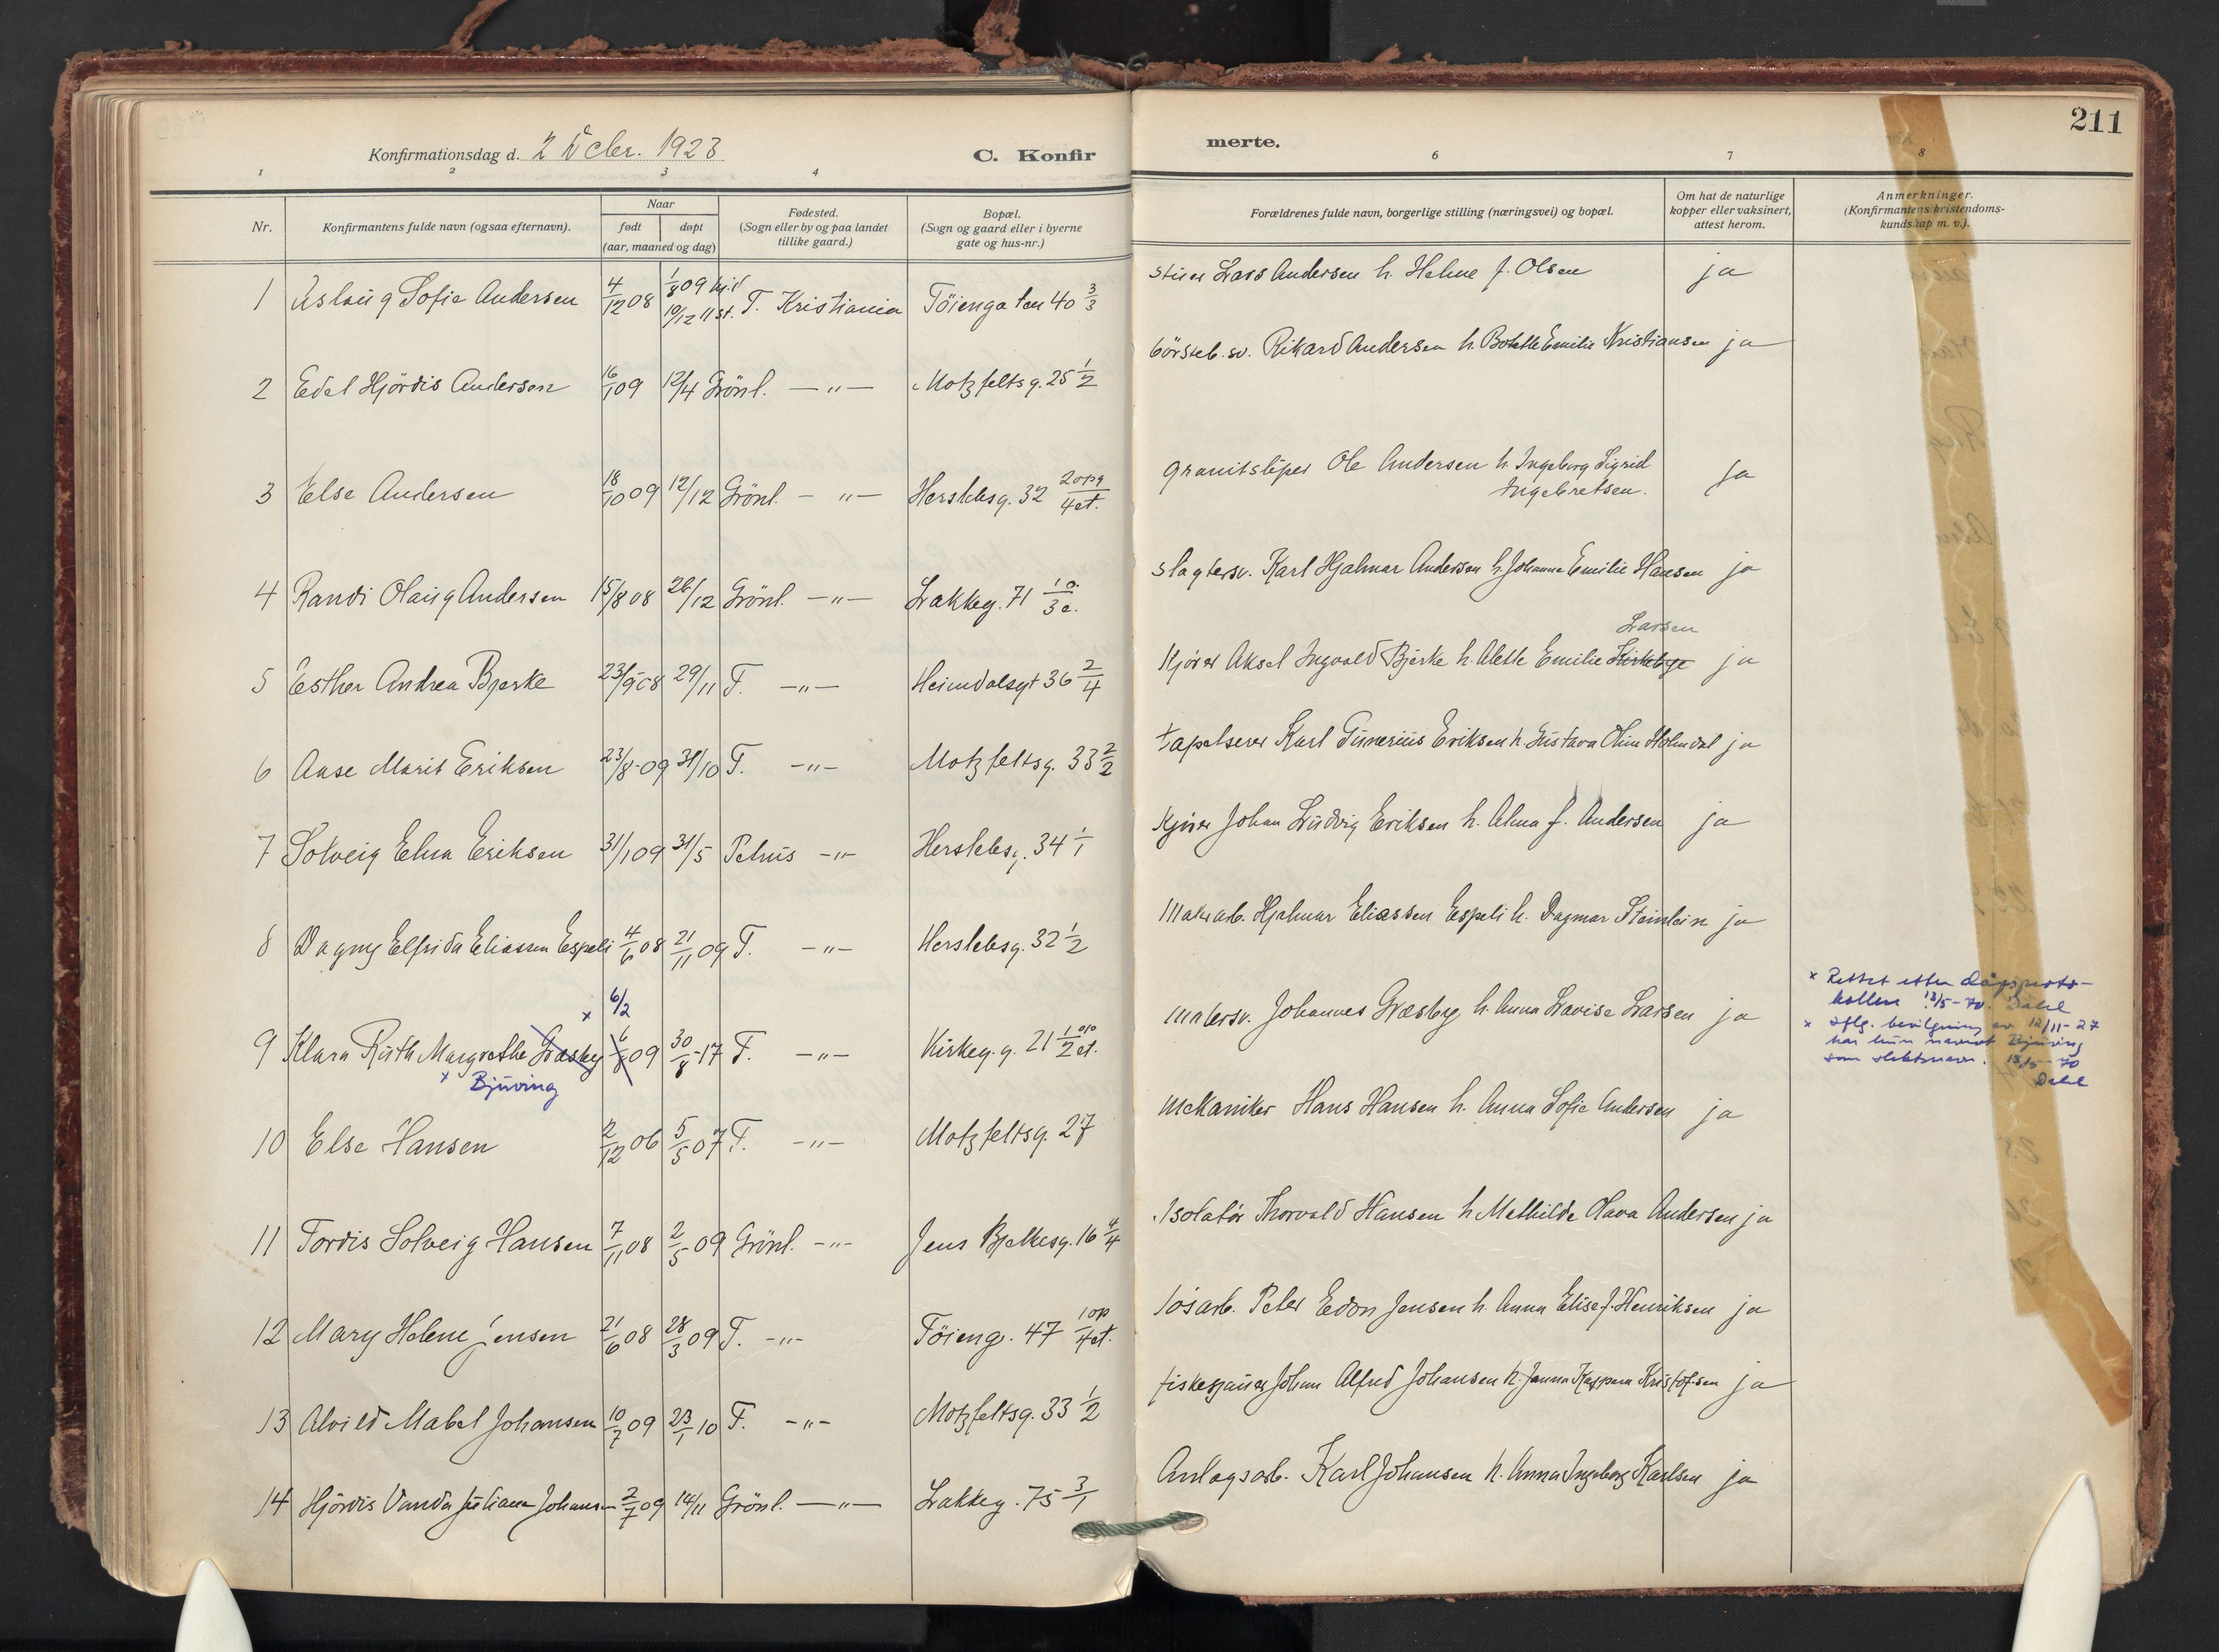 Konfirmationsdag d. 2 Decbr. 1923
C. Konfir
merte.
211
1 2 3 4 6 7 8
Nr.
Konfirmantens fulde navn (ogsaa efternavn).
Naar
født døpt
(aar, maaned og dag)
Fødested.
(Sogn eller by og paa landet
tillike gaard.)
Bopæl.
(Sogn og gaard eller i byerne
gate og hus-nr.)
Forældrenes fulde navn, borgerlige stilling (næringsvei) og bopæl.
Om hat de naturlige
kopper eller vaksinert,
attest herom.
Anmerkninger.
(Konfirmantens kristendoms-
kundskap m. v.).
1 Aslaug Sofie Andersen 4/12 08 1/8 09 hj.d 10/12 11 st. T. Kristiania Töienga ten 40 3/3 Lars Andersen h. Helene f. Olsen ja
2 Edel Hjördis Andersen 16/1 09 12/4 Grönl. —"— Motzfeltsg. 25 1/2 börsteb. sv. Rikard Andersen h. Bolette Emilie Kristiansen ja
3 Else Andersen 18/10 09 12/12 Grönl. —"— Herslebsg. 32 2opg/4et. granitsliper Ole Andersen h. Ingeborg Sigrid Ingebretsen. ja
4 Randi Olaug Andersen 15/8 08 26/12 Grönl. —"— Lakkeg. 71 1 o./3 e. slagtersv. Karl Hjalmar Andersen h. Johanne Emilie Hansen ja
5 Esther Andrea Bjerke 23/9-08 29/11 T. —"— Heimdalsgt 36 2/4 Kjörer Aksel Ingvald Bjerke h. Alette Emilie Kirkebye Larsen ja
6 Aase Marit Eriksen 23/8-09 31/10 T. —"— Motzfeltsg. 33 2/2 tapetserer Karl Gunerius Eriksen h. Gustava Oline Holmdal ja
7 Solveig Elna Eriksen 31/1 09 31/5 Petrus —"— Herslebsg. 34 1/1 Kjörer Johan Ludvig Eriksen h. Alma f. Andersen ja
8 Dagny Elfrida Eliassen Espeli 4/6 08 21/11 09 T. —"— Herslebsg. 32 1/2 Hjalmar Eliassen Espeli h. Dagmar Steinlein ja
x 6/2
9 Klara Ruth Margrethe Græsby 6/8 09 30/8-17 T. —"— Kirkeg. g. 21 1 op/2 et. malersv. Johannes Græsby h. Anna Lovise Larsen ja
x Bjuving
x Rettet etter dåpsproto-
kollen 13/5-70. Dahl
x Iflg. bevilgning av 12/11-27
har hun navnet Bjuving
som slektsnavn. 13/5-70
Dahl
10 Else Hansen 2/12 06 5/5 07 T. —"— Motzfeltsg. 27 Mekaniker Hans Hansen h. Anna Sofie Andersen ja
11 Tordis Solveig Hansen 7/11 08 2/5 09 Grönl. —"— Jens Bjelkesg. 16 4/4 Isolatör Thorvald Hansen h Mathilde Olava Andersen ja
12 Mary Helene Jensen 21/6 08 28/3 09 T. —"— Töieng. 47 1 op/4et. lösarb. Peter Edon Jensen h. Anna Elise f. Henriksen ja
13 Alvild Mabel Johansen 10/7 09 23/1 10 T. —"— Motzfeltsg. 33 1/2 Johan Alfred Johansen h. Janna Kaspara Kristofsen ja
14 Hjördis Vanda Juliane Johansen 2/7 09 14/11 Grönl. —"— Lakkeg. 75 3/1 Anlagsarb. Karl Johansen h. Anna Ingeborg Karlsen ja